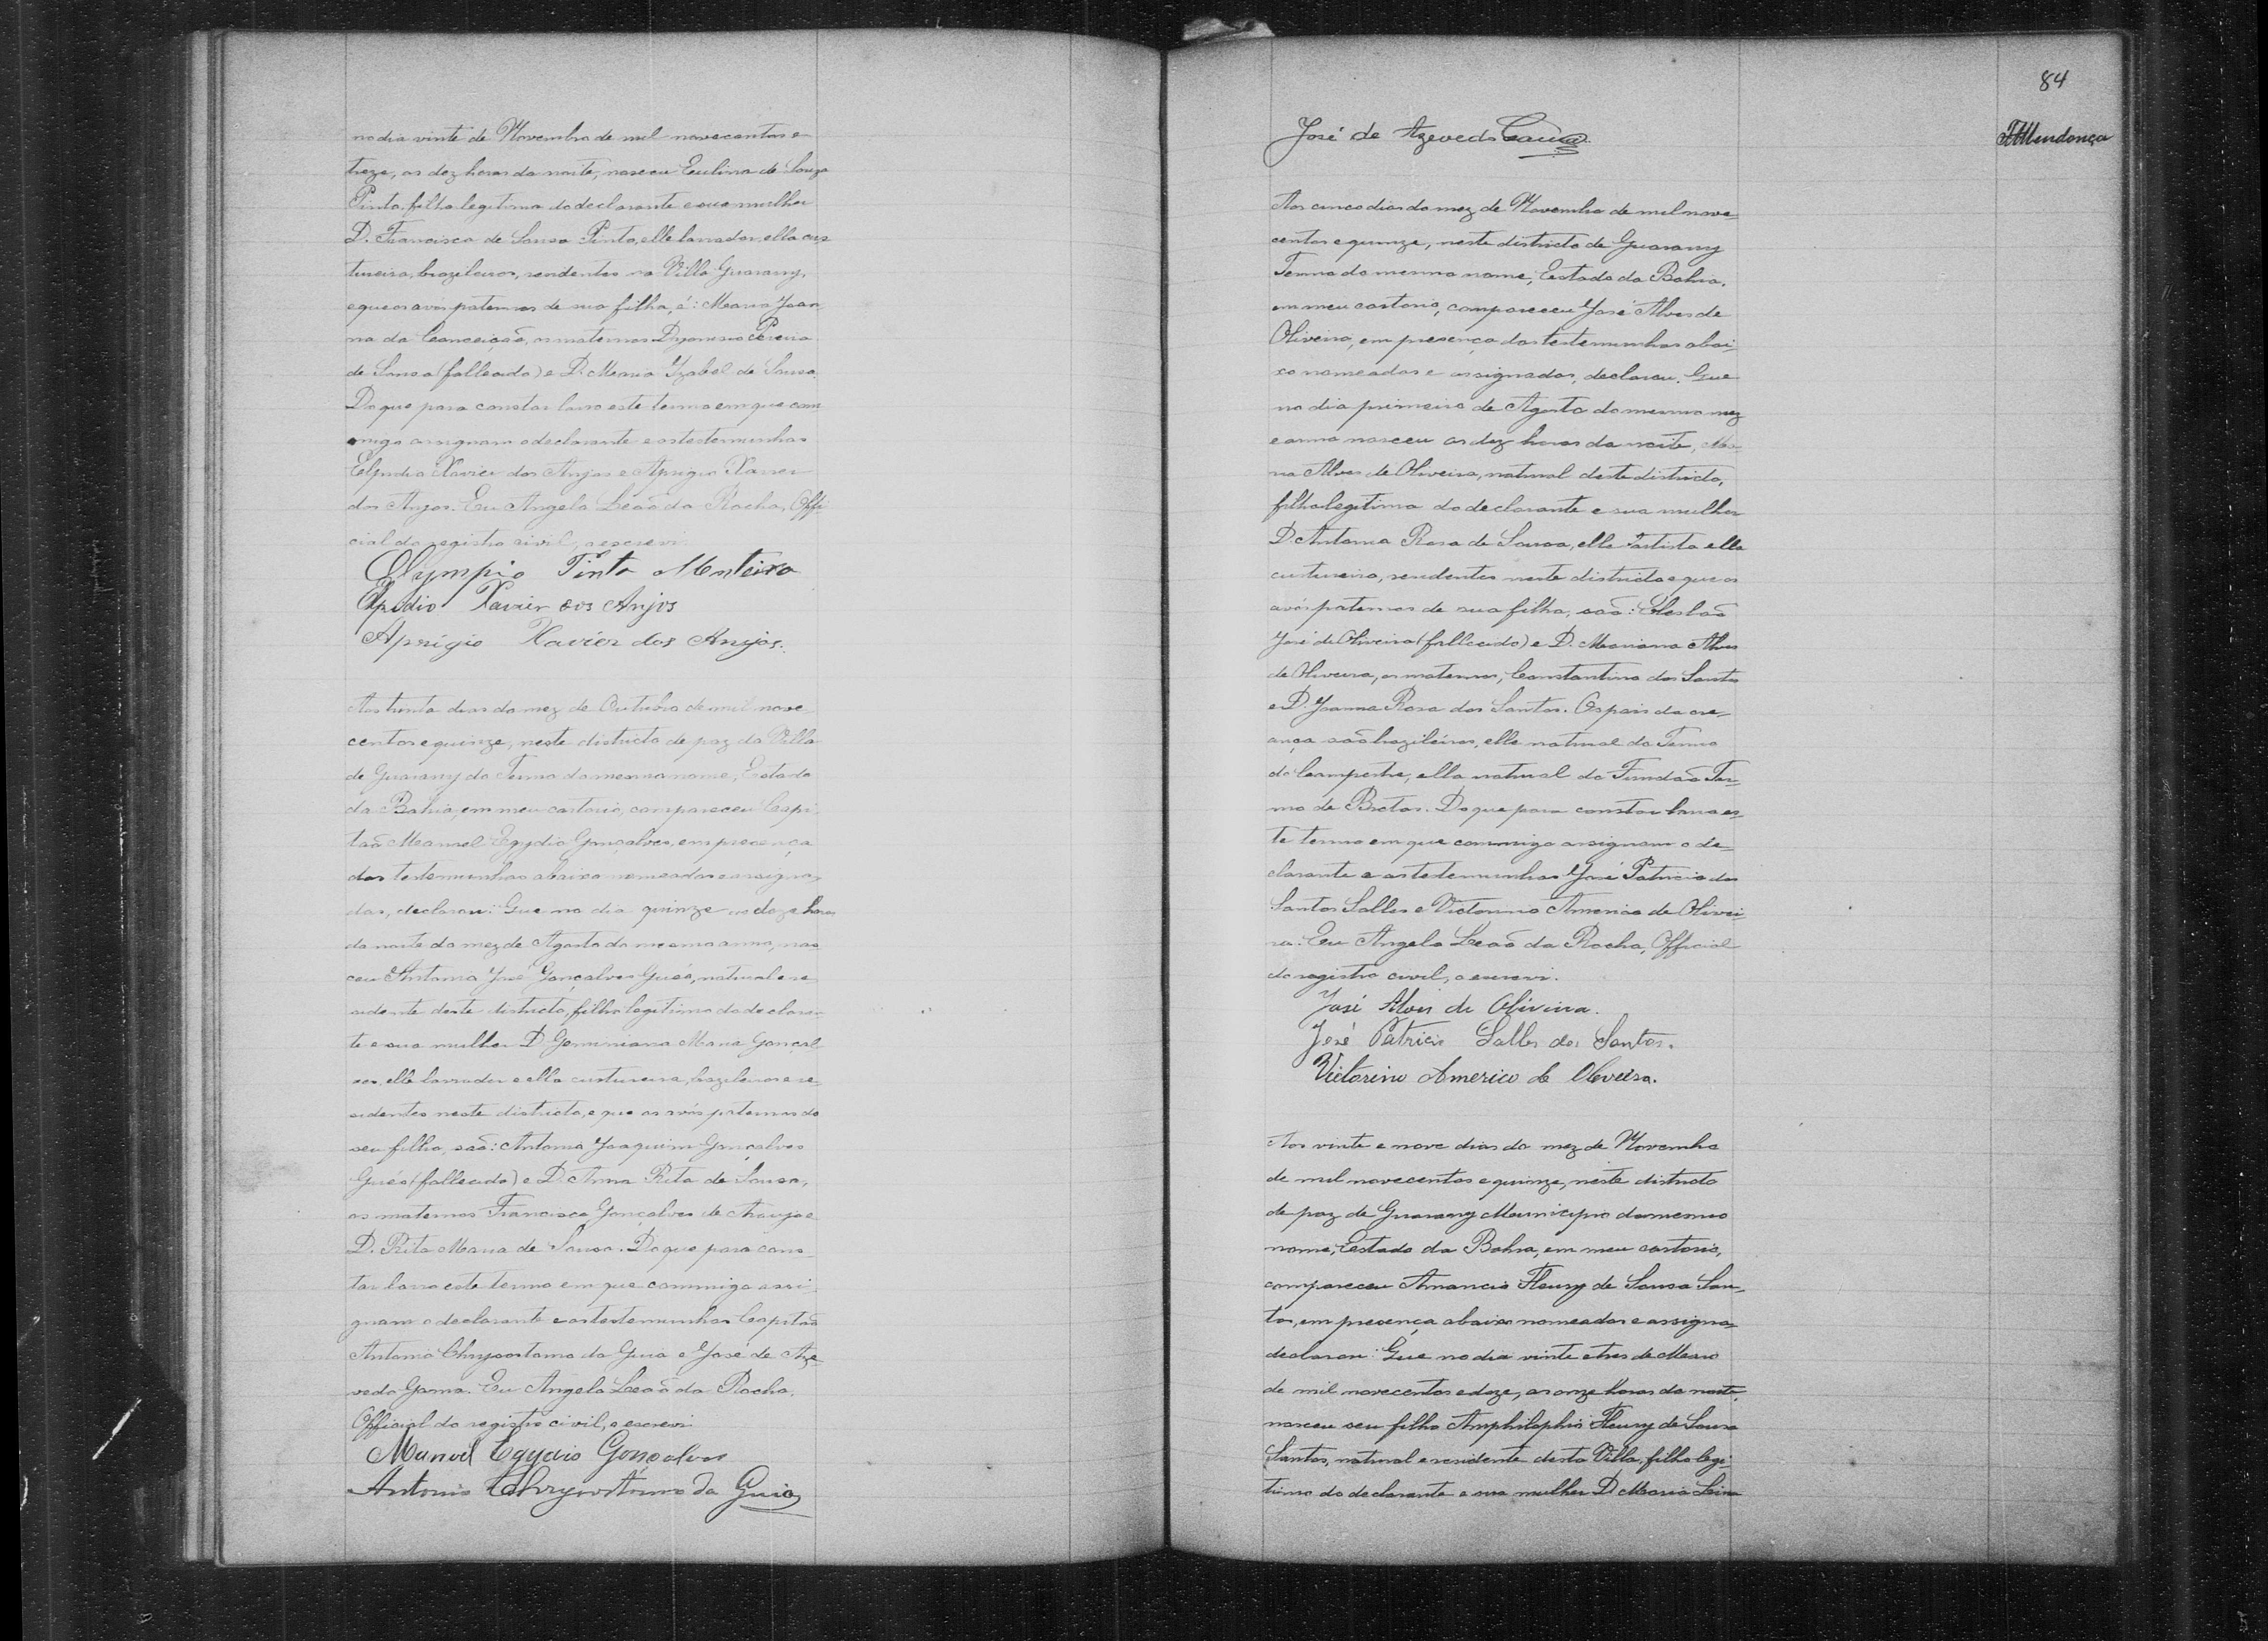 no dia vinte de Novembro de mil novecentos e
treze, as dez horas da noite, nasceu Eulina de Souza
Pinto, filha legitima do declarante e sua mulher
D. Francisca de Sousa Pinto, elle lavrador, ella cus
tureira, brazileiros, residentes na Villa Guarany,
e que os avos paternos de sua filha, é: Maria Joan
na da Conceição, os maternos Dyonisio Pereira
de Sousa (fallecido) e D. Maria Izabel de Sousa.
Do que para constar lavro este termo em que com
migo assignam o declarante e as testemunhas
Elpidio Xavier dos Anjos e Aprigio Xavier
dos Anjos. Eu Angelo Leão da Rocha, Offi
cial do registro civil, o escrevi.
Olympio Pinto Monteiro
Elpidio Xavier dos Anjos
Aprigio Xavier dos Anjos.
Aos trinta dias do mez de Outubro de mil nove
centos e quinze, neste districto de paz da Villa
de Guarany do Termo do mesmo nome, Estado
da Bahia, em meu cartorio, compareceu Capi
tão Manoel Egydio Gonçalves, em presença
das testemunhas abaixo nomeadas e assigna
das, declarou: Que no dia quinze as doze horas
da noite do mez de Agosto do mesmo anno, nas
ceu Antonio José Gonçalves Gués, natural e re
sidente deste districto, filho legitimo do declaran
te e sua mulher D. Germiniana Maria Gonçal
ves, elle lavrador e ella custureira, brazileiros e re
sidentes neste districto, e que os avós paternos do
seu filho, são: Antonio Joaquim Gonçalves
Gués (fallecido) e D. Anna Rita de Sousa,
os maternos Francisco Gonçalves de Araujo e
D. Rita Maria de Sousa. Do que para cons
tar lavro este termo em que commigo assi
gnam o declarante e as testemunhas Capitão
Antonio Chrysostomo da Guia e José de Aze
vedo Gama. Eu Angelo Leão da Rocha,
Official do registro civil, o escrevi
Manoel Egydio Gonçalves
Antonio Chrysostomo da Guia
84
José de Azevedo
Mendonça
Aos cinco dias do mez de Novembro de mil nove
centos e quinze, neste districto de Guarany
Termo do mesmo nome, Estado da Bahia,
em meu cartorio, compareceu José Alves de
Oliveira, em presença das testemunhas abai-
xo nomeadas e assignadas, declarou: Que
no dia primeiro de Agosto do mesmo mez
e anno nasceu as dez horas da noite,
Alves de Oliveira, natural deste districto,
filha legitima do declarante e sua mulher
D. Antonia Rosa de Sousa, elle artista ella
custureira, residentes neste districto e que os
avós paternos de sua filha, são: Elesbão
José de Oliveira (fallecido) e D. Marianna Alves
de Oliveira, os maternos, Constantino dos Santos
e D. Joanna Rosa dos Santos. Os pais da cre-
ança são brazileiros, elle natural do Termo
do Campestre, ella natural do Fundão Ter-
mo de Brotas. Do que para constar lavro es-
te termo em que commigo assignam o de-
clarante e as testemunhas José Patricio dos
Santos Salles e Victorino Americo de Olivei-
ra. Eu Angelo Leão da Rocha, Official
do registro civil, o escrevi.
José Alves de Oliveira.
José Patricio Salles dos Santos.
Victorino Americo de Oliveira.
Aos vinte e nove dias do mez de Novembro
de mil novecentos e quinze, neste districto
de paz de Guarany Municipio do mesmo
nome, Estado da Bahia, em meu cartorio,
compareceu Amancio Fleury de Sousa San-
tos, em presença abaixo nomeadas e assigna-
declarou: Que no dia vinte e tres de Março
de mil novecentos e doze, as onze horas da noite,
nasceu seu filho Amphilophio Fleury de Sousa
Santos, natural e residente desta Villa, filho legi-
timo do declarante e sua mulher D. Maria